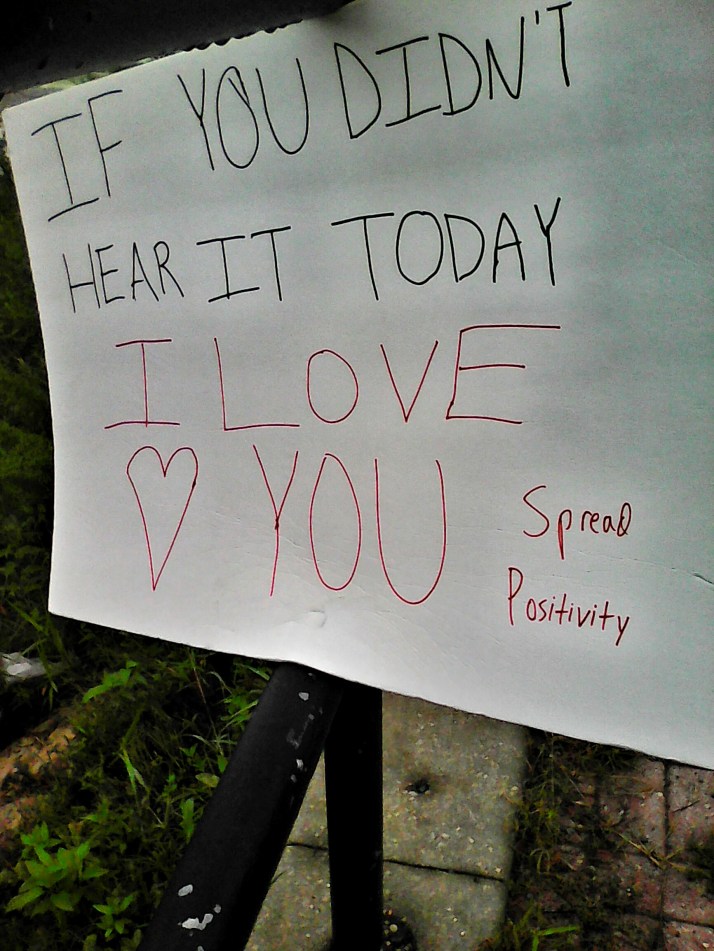 IF YOU DIDN'T
HEAR IT TODAY
I LOVE
♡ YOU
Spread
Positivity